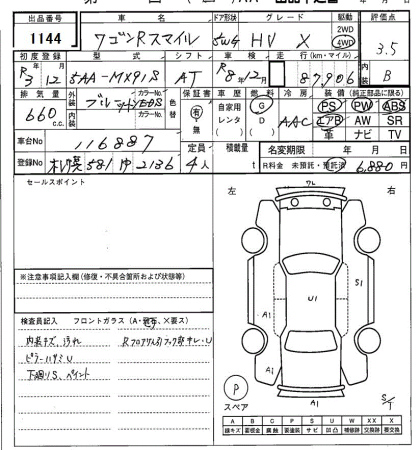 出品番号 車名 ドア形状 グレード 駆動 評価点
1144 ワゴンRスマイル 5WG HV X 2WD 4WD 3.5
初度登録 型式 シフト 車検 走行 (km・マイル) 内装
R3 12 5AA-MX91S AT R8年 月 87,906 B
排気量 外装 カラーNo. 色替 保証書 車歴 燃料 冷房 装備(純正部品に限る)
660 c.c. 内装 カラーNo. 有・無 自家用 レンタ G D AAC PS PW ABS
エアB AW SR
車 ナビ TV
車台No 116887 定員 積載量 名変期限 年 月 日
登録No 札幌 581 ゆ 2136 4人 t R料金 未預託・預託済 6,880円
セールスポイント
左 右
※注意事項記入欄(修復・不具合箇所および状態等)
検査員記入 フロントガラス(A・飛石、X要ス)
内装キズ、汚れ
ピラーハガミU
下廻りS、ペイント
U1
S1
A1
A1
A1
P
スペア
S/T
A B C P S U W XX X
線キズ 要板金 腐蝕 要塗装 サビ 凹凸 補修跡 交換跡 要交換